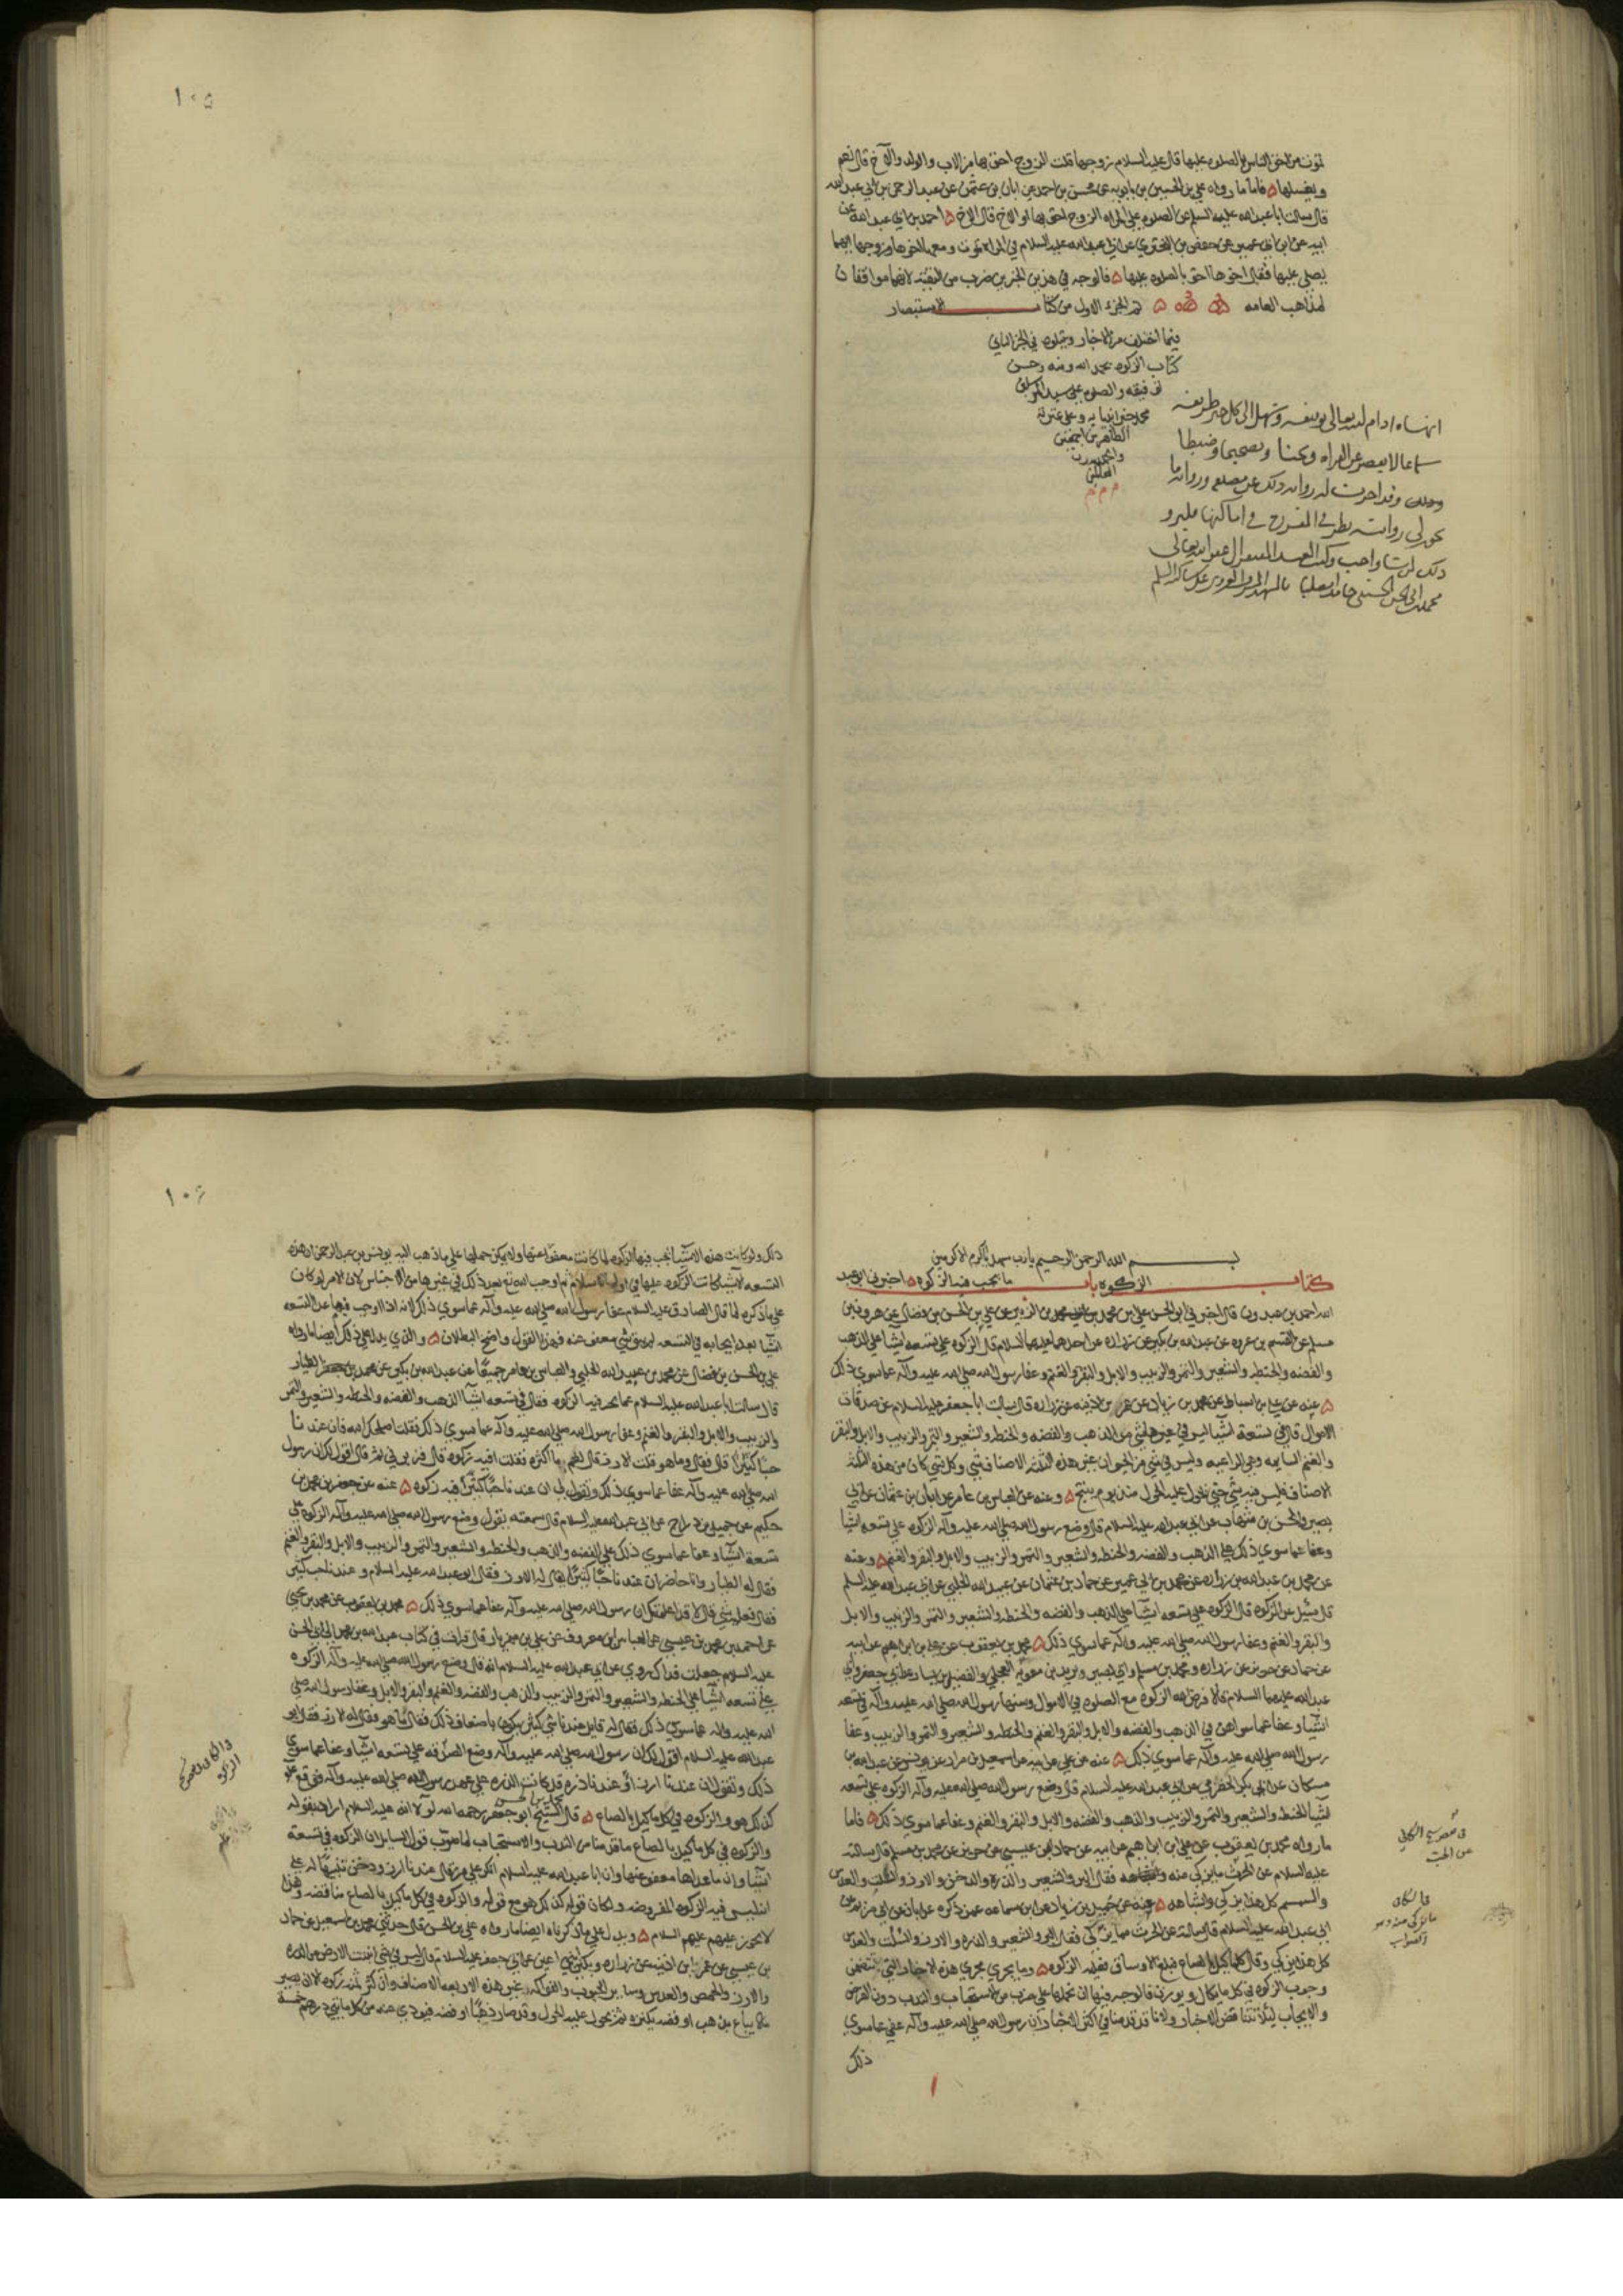 ١٠٥
تموت من احق الناس بالصلوه عليها قال عليه السلام زوجها قلت الزوج احق بها من الاب والولد والاخ قال نعم
ويغسلها ۵ فاما ما رواه علي بن الحسين بن بابويه عن محسن بن احمد عن ابان بن عثمن عن عبد الرحمن بن ابي عبد الله
قال سالت ابا عبد الله عليه السلم عن الصلوه علي المراه الزوج احق بها او الاخ قال الاخ ۵ احمد بن ابي عبد الله عن
ابيه عن ابن ابي عمير عن حفص بن البختري عن ابي عبد الله عليه السلام في المراه تموت ومعها اخوها وزوجها ايهما
يصلي عليها فقال اخوها احق بالصلوه عليها ۵ فالوجه في هذين الخبرين ضرب من التقيه لانهما موافقان
لمذاهب العامه ۵ تم الجزء الاول من كتاب الاستبصار
فيما اختلف من الاخبار ويتلوه في الجز الثاني
كتاب الزكوه بحمد الله ومنه وحسن
توفيقه والصلوه علي سيد المرسلين
محمد خير انبيايه وعلي عترته
الطاهرين اجمعين
والحمد لله رب
العالمين
م م م
انهاه ادام الله تعالى توفيقه وتسهل الى كل خير طريقه
سماعا لا يقصر عن القراه وبحثا وتصحيحا وضبطا
وقد اجزت له روايه ذلك عني
ذلك لمن شا واحب وكتب العبد
محمد بن ابي الحسن الحسيني حامدا مصليا
١٠۶
بسم الله الرحمن الرحيم يا رب سهل يا اكرم الاكرمين
كتاب الزكوه باب ما تجب فيه الزكوه ۵ اخبرني ابو عبد
الله احمد بن عبدون قال اخبرني ابو الحسن علي بن محمد بن الزبير عن علي بن الحسن بن فضال عن هرون بن
مسلم عن القسم بن عروه عن عبد الله بن بكير عن زراره عن احدهما عليهما السلام قال الزكوه علي تسعه اشيا علي الذهب
والفضه والحنطه والشعير والتمر والزبيب والابل والبقر والغنم وعفا رسول الله صلي الله عليه وآله عما سوي ذلك
۵ عنه عن علي بن اسباط عن محمد بن زياد عن عمر بن اذينه عن زراره قال سالت ابا جعفر عليه السلام عن صدقات
الاموال قال في تسعة اشيا ليس في غيرها شي من الذهب والفضه والحنطه والشعير والتمر والزبيب والابل والبقر
والغنم السايمه وهي الراعيه وليس في شي من الحيوان غير هذه الثلثه الاصناف شي وكل شي كان من هذه الثلثه
الاصناف فليس فيه شي حتي يحول عليه الحول منذ يوم ينتج ۵ وعنه عن العباس بن عامر عن ابان بن عثمان عن ابي
بصير والحسن بن شهاب عن ابي عبد الله عليه السلام قال وضع رسول الله صلي الله عليه وآله الزكوه علي تسعه اشيا
وعفا عما سوي ذلك علي الذهب والفضه والحنطه والشعير والتمر والزبيب والابل والبقر والغنم ۵ وعنه
عن محمد بن عبد الله بن زراره عن محمد بن ابي عمير عن حماد بن عثمان عن عبيد الله الحلبي عن ابي عبد الله عليه السلم
قال سئل عن الزكوه قال الزكوه علي تسعه اشيا علي الذهب والفضه والحنطه والشعير والتمر والزبيب والابل
والبقر والغنم وعفا رسول الله صلي الله عليه وآله عما سوي ذلك ۵ محمد بن يعقوب عن علي بن ابراهيم عن ابيه
عن حماد عن حريز عن زراره ومحمد بن مسلم وابي بصير وبريد بن معويه العجلي والفضيل بن يسار عن ابي جعفر وابي
عبد الله عليهما السلام قالا فرض الله الزكوه مع الصلوه في الاموال وسنها رسول الله صلي الله عليه وآله في تسعه
اشيا وعفا عما سواهن في الذهب والفضه والابل والبقر والغنم والحنطه والشعير والتمر والزبيب وعفا
رسول الله صلي الله عليه وآله عما سوي ذلك ۵ عنه عن علي عن ابيه عن اسمعيل بن مرار عن يونس عن عبد الله بن
مسكان عن ابي بكر الحضرمي عن ابي عبد الله عليه السلام قال وضع رسول الله صلي الله عليه وآله الزكوه علي تسعه
اشيا الحنطه والشعير والتمر والزبيب والذهب والفضه والابل والبقر والغنم وعفا عما سوي ذلك ۵ فاما
ما رواه محمد بن يعقوب عن علي بن ابراهيم عن ابيه عن حماد بن عيسي عن حريز عن محمد بن مسلم قال سالته
عليه السلام عن الحرث ما يزكي منه فقال البر والشعير والذره والدخن والارز والسلت والعدس
والسمسم كل هذا يزكي واشباهه ۵ عنه عن حميد بن زياد عن ابن سماعه عمن ذكره عن ابان عن ابي مريم عن
ابي عبد الله عليه السلام قال سالته عن الحرث مما يزكي فقال البر والشعير والذره والارز والسلت والعدس
كل هذا يزكي وقال كلما كيل بالصاع فبلغ الاوساق فعليه الزكوه ۵ وما يجري مجري هذه الاخبار التي تتضمن
وجوب الزكوه في كل ما يكال ويوزن فالوجه فيها ان نحملها علي ضرب من الاستحباب والندب دون الفرض
والايجاب ليلا تتناقض الاخبار ولانا قد قدمنا في اكثر الاخبار ان رسول الله صلي الله عليه وآله عفي عما سوي
ذلك
ذلك ولو كانت هذه الاشيا تجب فيها الزكوه لما كانت معفوا عنها ولا يمكن حملها علي ما ذهب اليه يونس بن عبد الرحمن ان هذه
التسعه الاشيا كانت الزكوه عليها في اول الاسلام ثم اوجب الله تع بعد ذلك في غيرها من الاجناس لان الامر لو كان
علي ما ذكره لما قال الصادق عليه السلام عفا رسول الله صلي الله عليه وآله عما سوي ذلك لانه اذا اوجب فيما عدا التسعه
اشيا بعد ايجابه في التسعه لم يبق شي معفو عنه فهذا القول واضح البطلان ۵ والذي يدل علي ذلك ايضا ما رواه
علي بن الحسن بن فضال عن محمد بن عبيد الله الحلبي والعباس بن عامر جميعا عن عبد الله بن بكير عن محمد بن الطيار
قال سالت ابا عبد الله عليه السلام عما تجب فيه الزكوه فقال في تسعه اشيا الذهب والفضه والحنطه والشعير والتمر
والزبيب والابل والبقر والغنم وعفا رسول الله صلي الله عليه وآله عما سوي ذلك فقلت اصلحك الله فان عندنا
حبا كثيرا قال فقال وما هو قلت الارز قال نعم ما اكثره فقلت افيه زكوه قال فزبرني ثم قال اقول لك ان رسول
الله صلي الله عليه وآله عفا عما سوي ذلك وتقول لي ان عندنا حبا كثيرا افيه زكوه ۵ عنه عن جعفر بن محمد بن
حكيم عن جميل بن دراج عن ابي عبد الله عليه السلام قال سمعته يقول وضع رسول الله صلي الله عليه وآله الزكوه علي
تسعة اشيا وعفا عما سوي ذلك علي الفضه والذهب والحنطه والشعير والتمر والزبيب والابل والبقر والغنم
فقال له الطيار وانا حاضر ان عندنا حبا كثيرا يقال له الارز فقال ابو عبد الله عليه السلام وعندنا حب كثير
قال فعليه شي قال لا قد اعلمتك ان رسول الله صلي الله عليه وآله عفا عما سوي ذلك ۵ محمد بن يعقوب عن محمد بن يحيي
عن احمد بن محمد بن عيسي عن العباس بن معروف عن علي بن مهزيار قال قرات في كتاب عبد الله بن محمد الي ابي الحسن
عليه السلام جعلت فداك روي عن ابي عبد الله عليه السلام انه قال وضع رسول الله صلي الله عليه وآله الزكوه
علي تسعه اشيا علي الحنطه والشعير والتمر والزبيب والذهب والفضه والغنم والبقر والابل وعفا رسول الله صلي
الله عليه وآله عما سوي ذلك فقال له قايل عندنا شي كثير يكون باضعاف ذلك فقال ما هو فقال له الارز فقال ابو
عبد الله عليه السلام اقول لك ان رسول الله صلي الله عليه وآله وضع الصدقه علي تسعه اشيا وعفا عما سوي
ذلك وتقول ان عندنا ارز او عندنا ذره قد كانت الذره علي عهد رسول الله صلي الله عليه وآله فوقع علم
كذلك هو والزكوه في كل ما كيل بالصاع ۵ قال الشيخ ابو جعفر محمد بن الحسن رحمه الله لولا انه عليه السلام اراد بقوله
والزكوه في كل ما كيل بالصاع ما قدمناه من الندب والاستحباب لما صوب قول السايل ان الزكوه في تسعة
اشيا وان ما عداها معفو عنها وان ابا عبد الله عليه السلام انكر علي من قال عندنا ارز ودخن تنبيها له علي
انه ليس فيه الزكوه المفروضه ولكان قوله كذلك هو مع قوله والزكوه في كل ما كيل بالصاع مناقضه وهذا
لا يجوز عليهم عليهم السلام ۵ ويدل علي ما ذكرناه ايضا ما رواه علي بن الحسن قال حدثني محمد بن اسمعيل عن حماد
بن عيسي عن عمر بن اذينه عن زراره وبكير ابني اعين عن ابي جعفر عليه السلام قال ليس في شي انبتت الارض من الذره
والارز والحمص والعدس وساير الحبوب والفواكه غير هذه الاربعه الاصناف وان كثر ثمنه زكوه الا ان يصير
مالا يباع بذهب او فضه يكنزه ثم يحول عليه الحول وقد صار ذهبا او فضه فيودي عنه من كل مايتي درهم خمسة